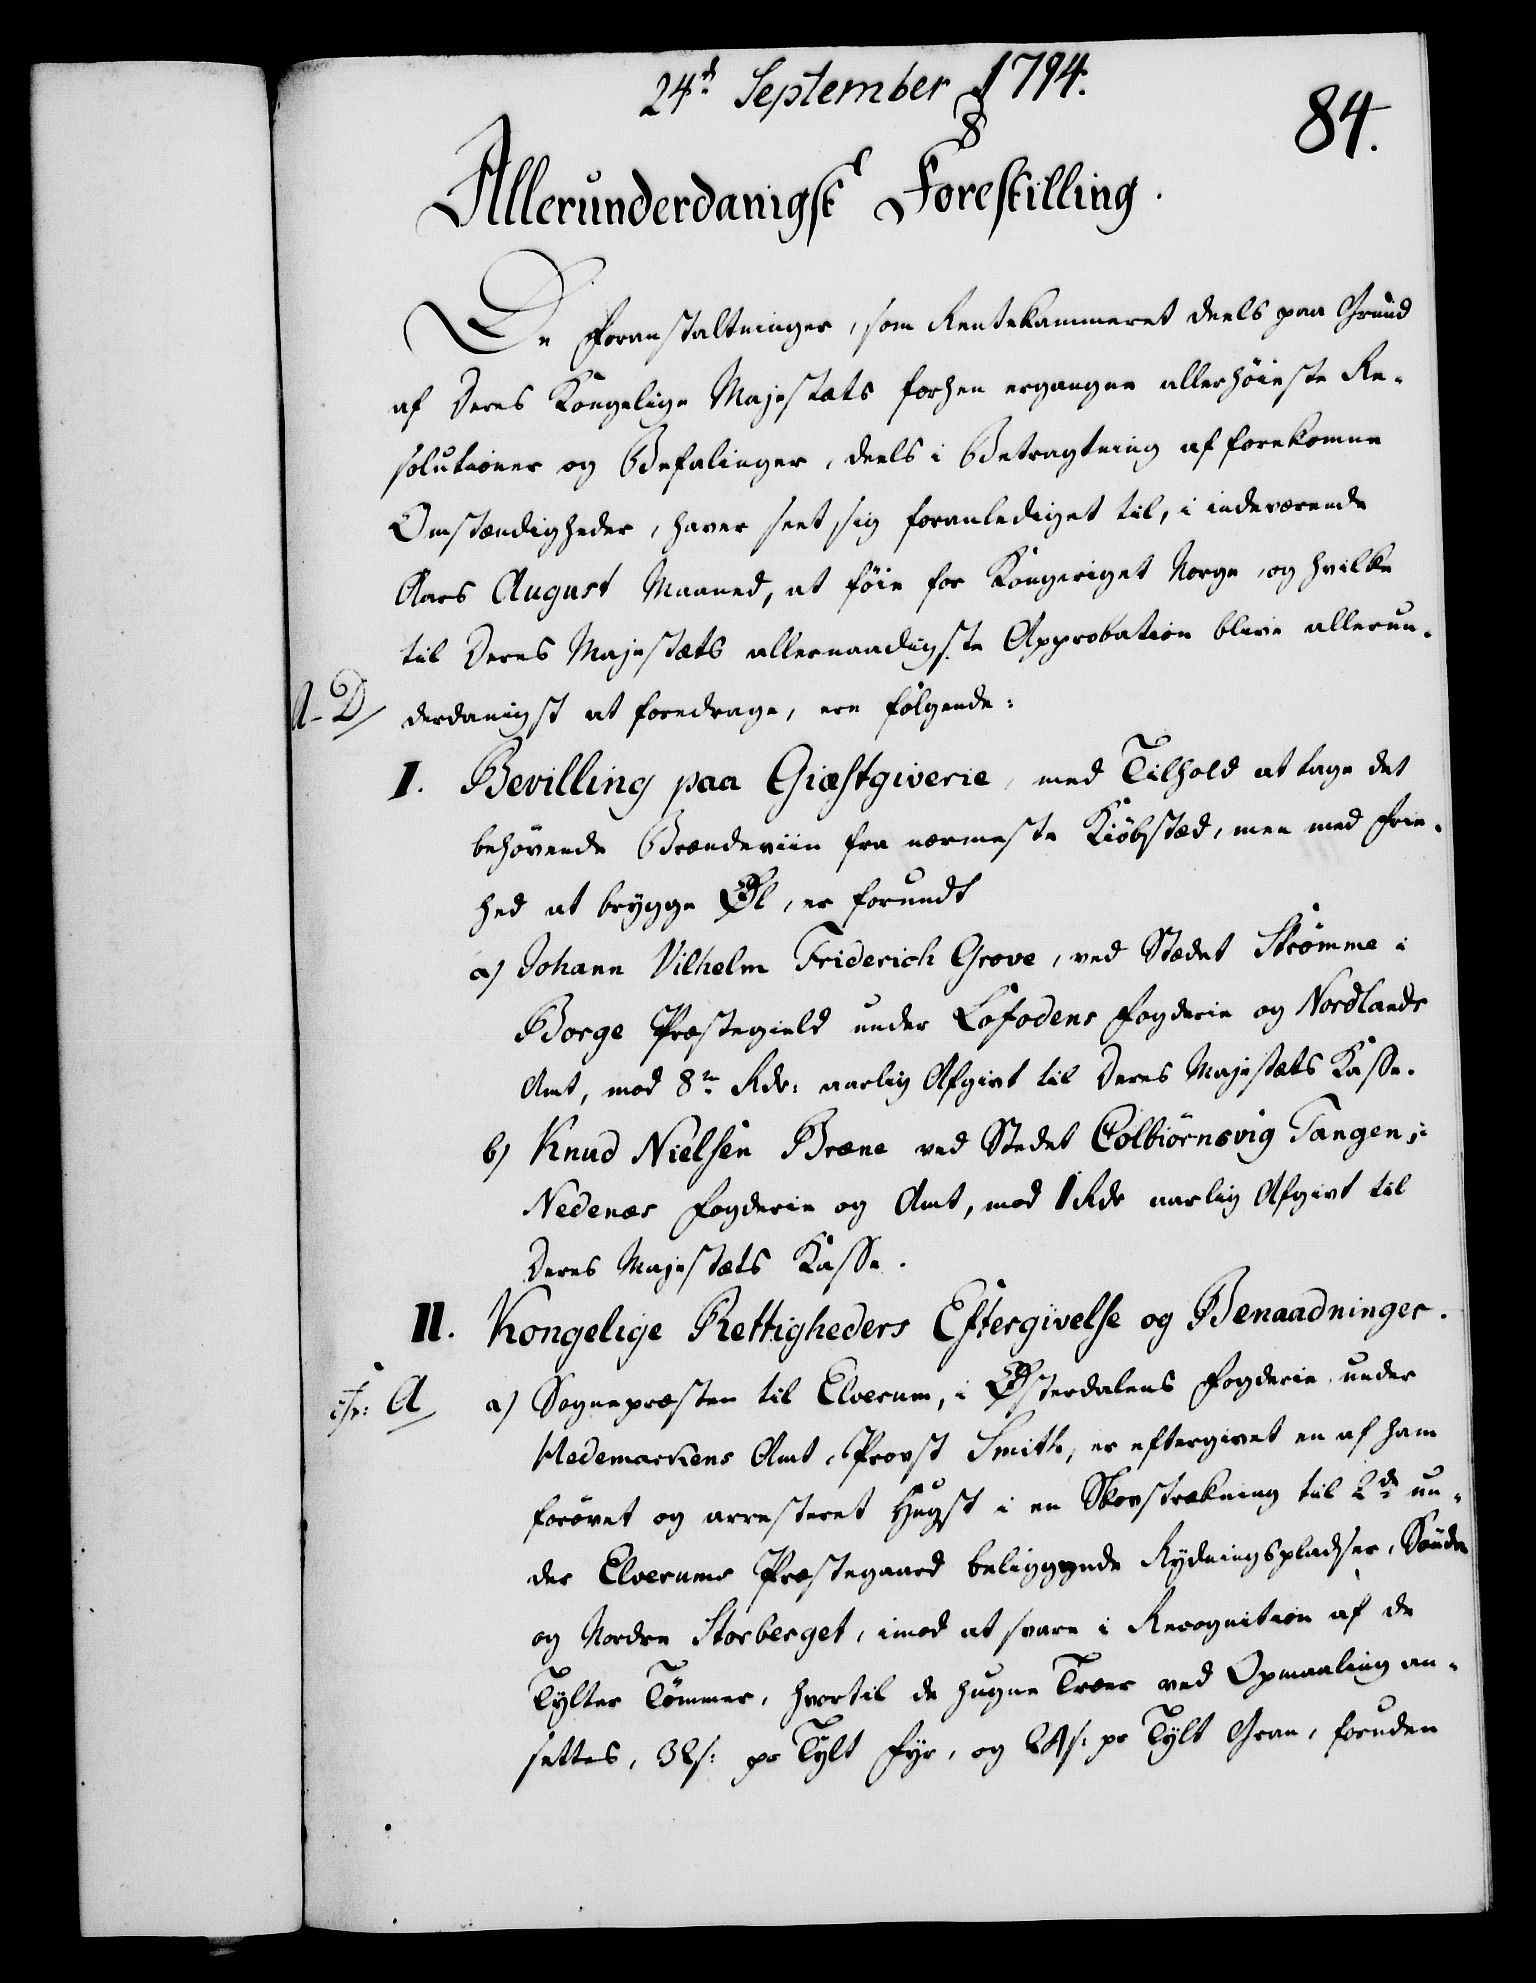 24de September 1794.
84.
Allerunderdanigst Forestilling.
De Foranstaltninger, som Rentekammeret deels paa Grund
af Deres Kongelige Majestæts forhen ergangne allerhöieste Re-
solutioner og Befalinger, deels i Betragtning af forekomne
Omstændigheder, haver seet sig foranlediget til, i indeværende
Aars August Maaned, at föie for Kongeriget Norge, og hvilke
til Deres Majestæts allernaadigste Approbation blive allerun-
A-D
derdanigst at foredrage, ere fölgende:
I. Bevilling paa Giæstgiverie, med Tilhold at tage det
behövende Brændeviin fra nærmeste Kiöbstæd, men med Frie-
hed at brygge Øl, er forundt
a) Johann Vilhelm Friderich Grove, ved Stædet Strömme i
Borge Præstegield under Lofodens Fogderie og Nordlands
Amt, mod 8te Rdr: aarlig Afgivt til Deres Majestæts Kasse.
b) Knud Nielsen Bræne ved Stedet Colbiörnsvig Tangen, i
Nedenæs Fogderie og Amt, mod 1 Rdr aarlig Afgivt til
Deres Majestæts Kasse.
II. Kongelige Rettigheders Eftergivelse og Benaadninger.
cfr: A
a) Sognepræsten til Elverum, i Østerdalens Fogderie under
Hedemarkens Amt, Provst Smith, er eftergivet en af ham
forövet og arresteret Hugst i en Skovstrækning til 2de un-
der Elverums Præstegaard beliggende Rydningspladser, Söndre
og Nordre Storberget, imod at svare i Recognition af de
Tylter Tömmer, hvortil de hugne Træer ved Opmaaling an-
settes, 32s: pr Tylt Fyr, og 24s: pr Tylt Gran, foruden